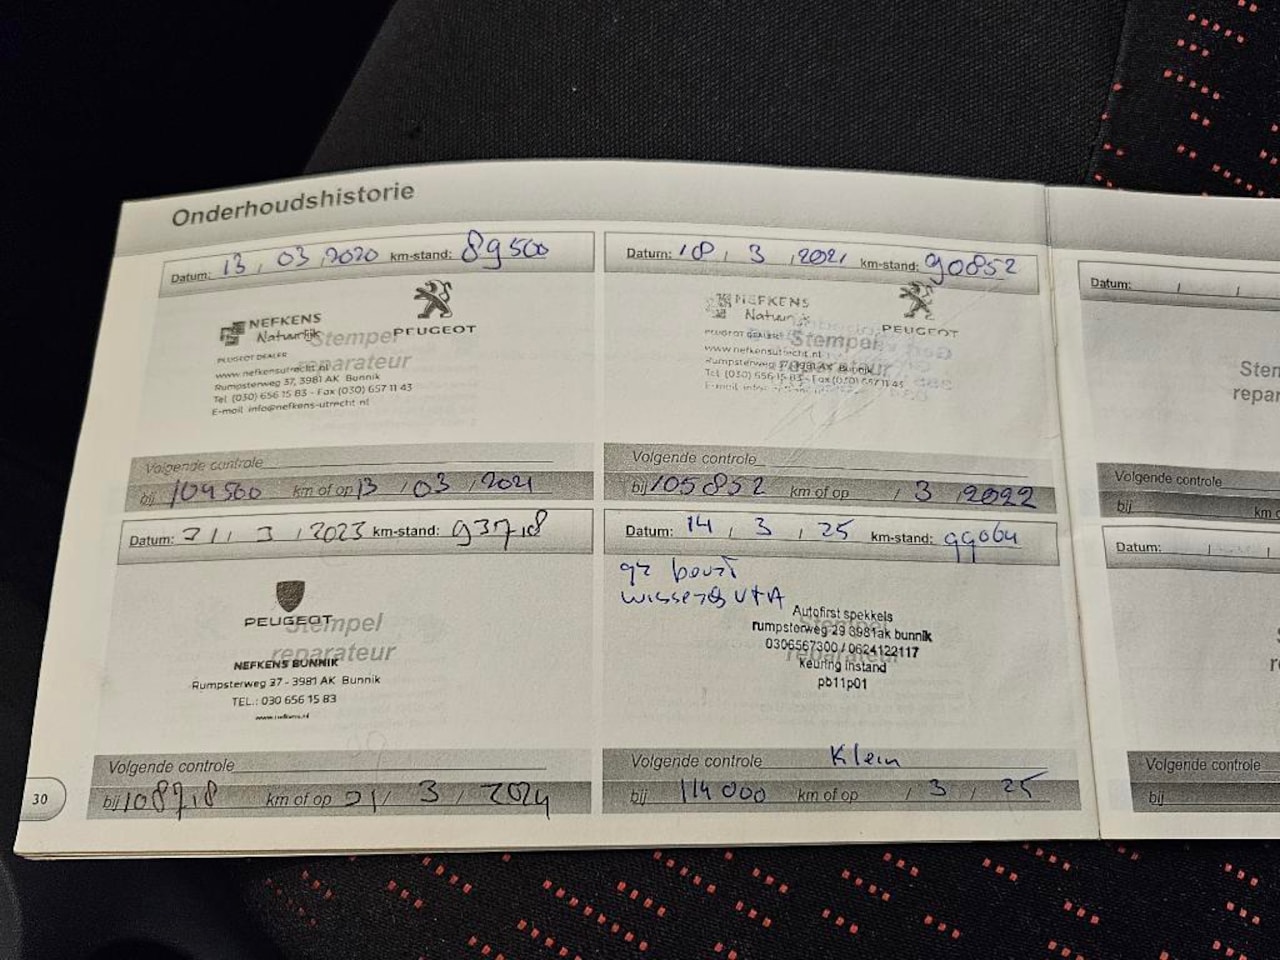 Onderhoudshistorie
Datum: 13 , 03 , 2020 km-stand: 89500
NEFKENS
Natuurlijk
PEUGEOT
Stempel
reparateur
PEUGEOT DEALER
www.nefkensutrecht.nl
Rumpsterweg 37, 3981 AK Bunnik
Tel. (030) 656 15 83 - Fax (030) 657 11 43
E-mail info@nefkens-utrecht.nl
Volgende controle
bij 104500 km of op 13 / 03 / 2021
Datum: 18 , 3 , 2021 km-stand: 90852
NEFKENS
Natuurlijk
PEUGEOT
Stempel
PEUGEOT DEALER
www.nefkensutrecht.nl
Rumpsterweg 37, 3981 AK Bunnik
Tel. (030) 656 15 83 - Fax (030) 657 11 43
Volgende controle
bij 105852 km of op / 3 / 2022
Datum: / /
Stem
repar
Volgende controle
bij km o
Datum: 21 / 3 / 2023 km-stand: 93718
PEUGEOT
Stempel
reparateur
NEFKENS BUNNIK
Rumpsterweg 37 - 3981 AK Bunnik
TEL.: 030 656 15 83
www.nefkens.nl
Volgende controle
bij 108718 km of op 21 / 3 / 2024
Datum: 14 / 3 / 25 km-stand: 99064
gr beurt
wissers V+A
Autofirst spekkels
rumpsterweg 29 3981ak bunnik
0306567300 / 0624122117
keuring instand
pb11p01
reparateur
Volgende controle Klein
bij 114000 km of op / 3 / 25
Datum: / /
Volgende controle
bij
30